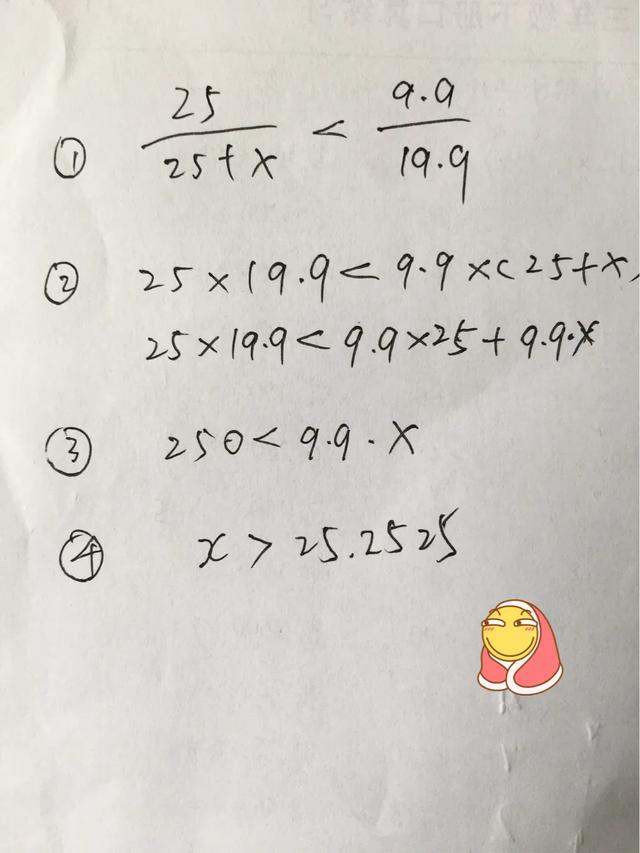 三年级下册口算练习
① 25/25+x < 9.9/19.9
② 25×19.9<9.9×(25+x)
25×19.9<9.9×25+9.9·x
③ 250<9.9·x
④ x>25.2525